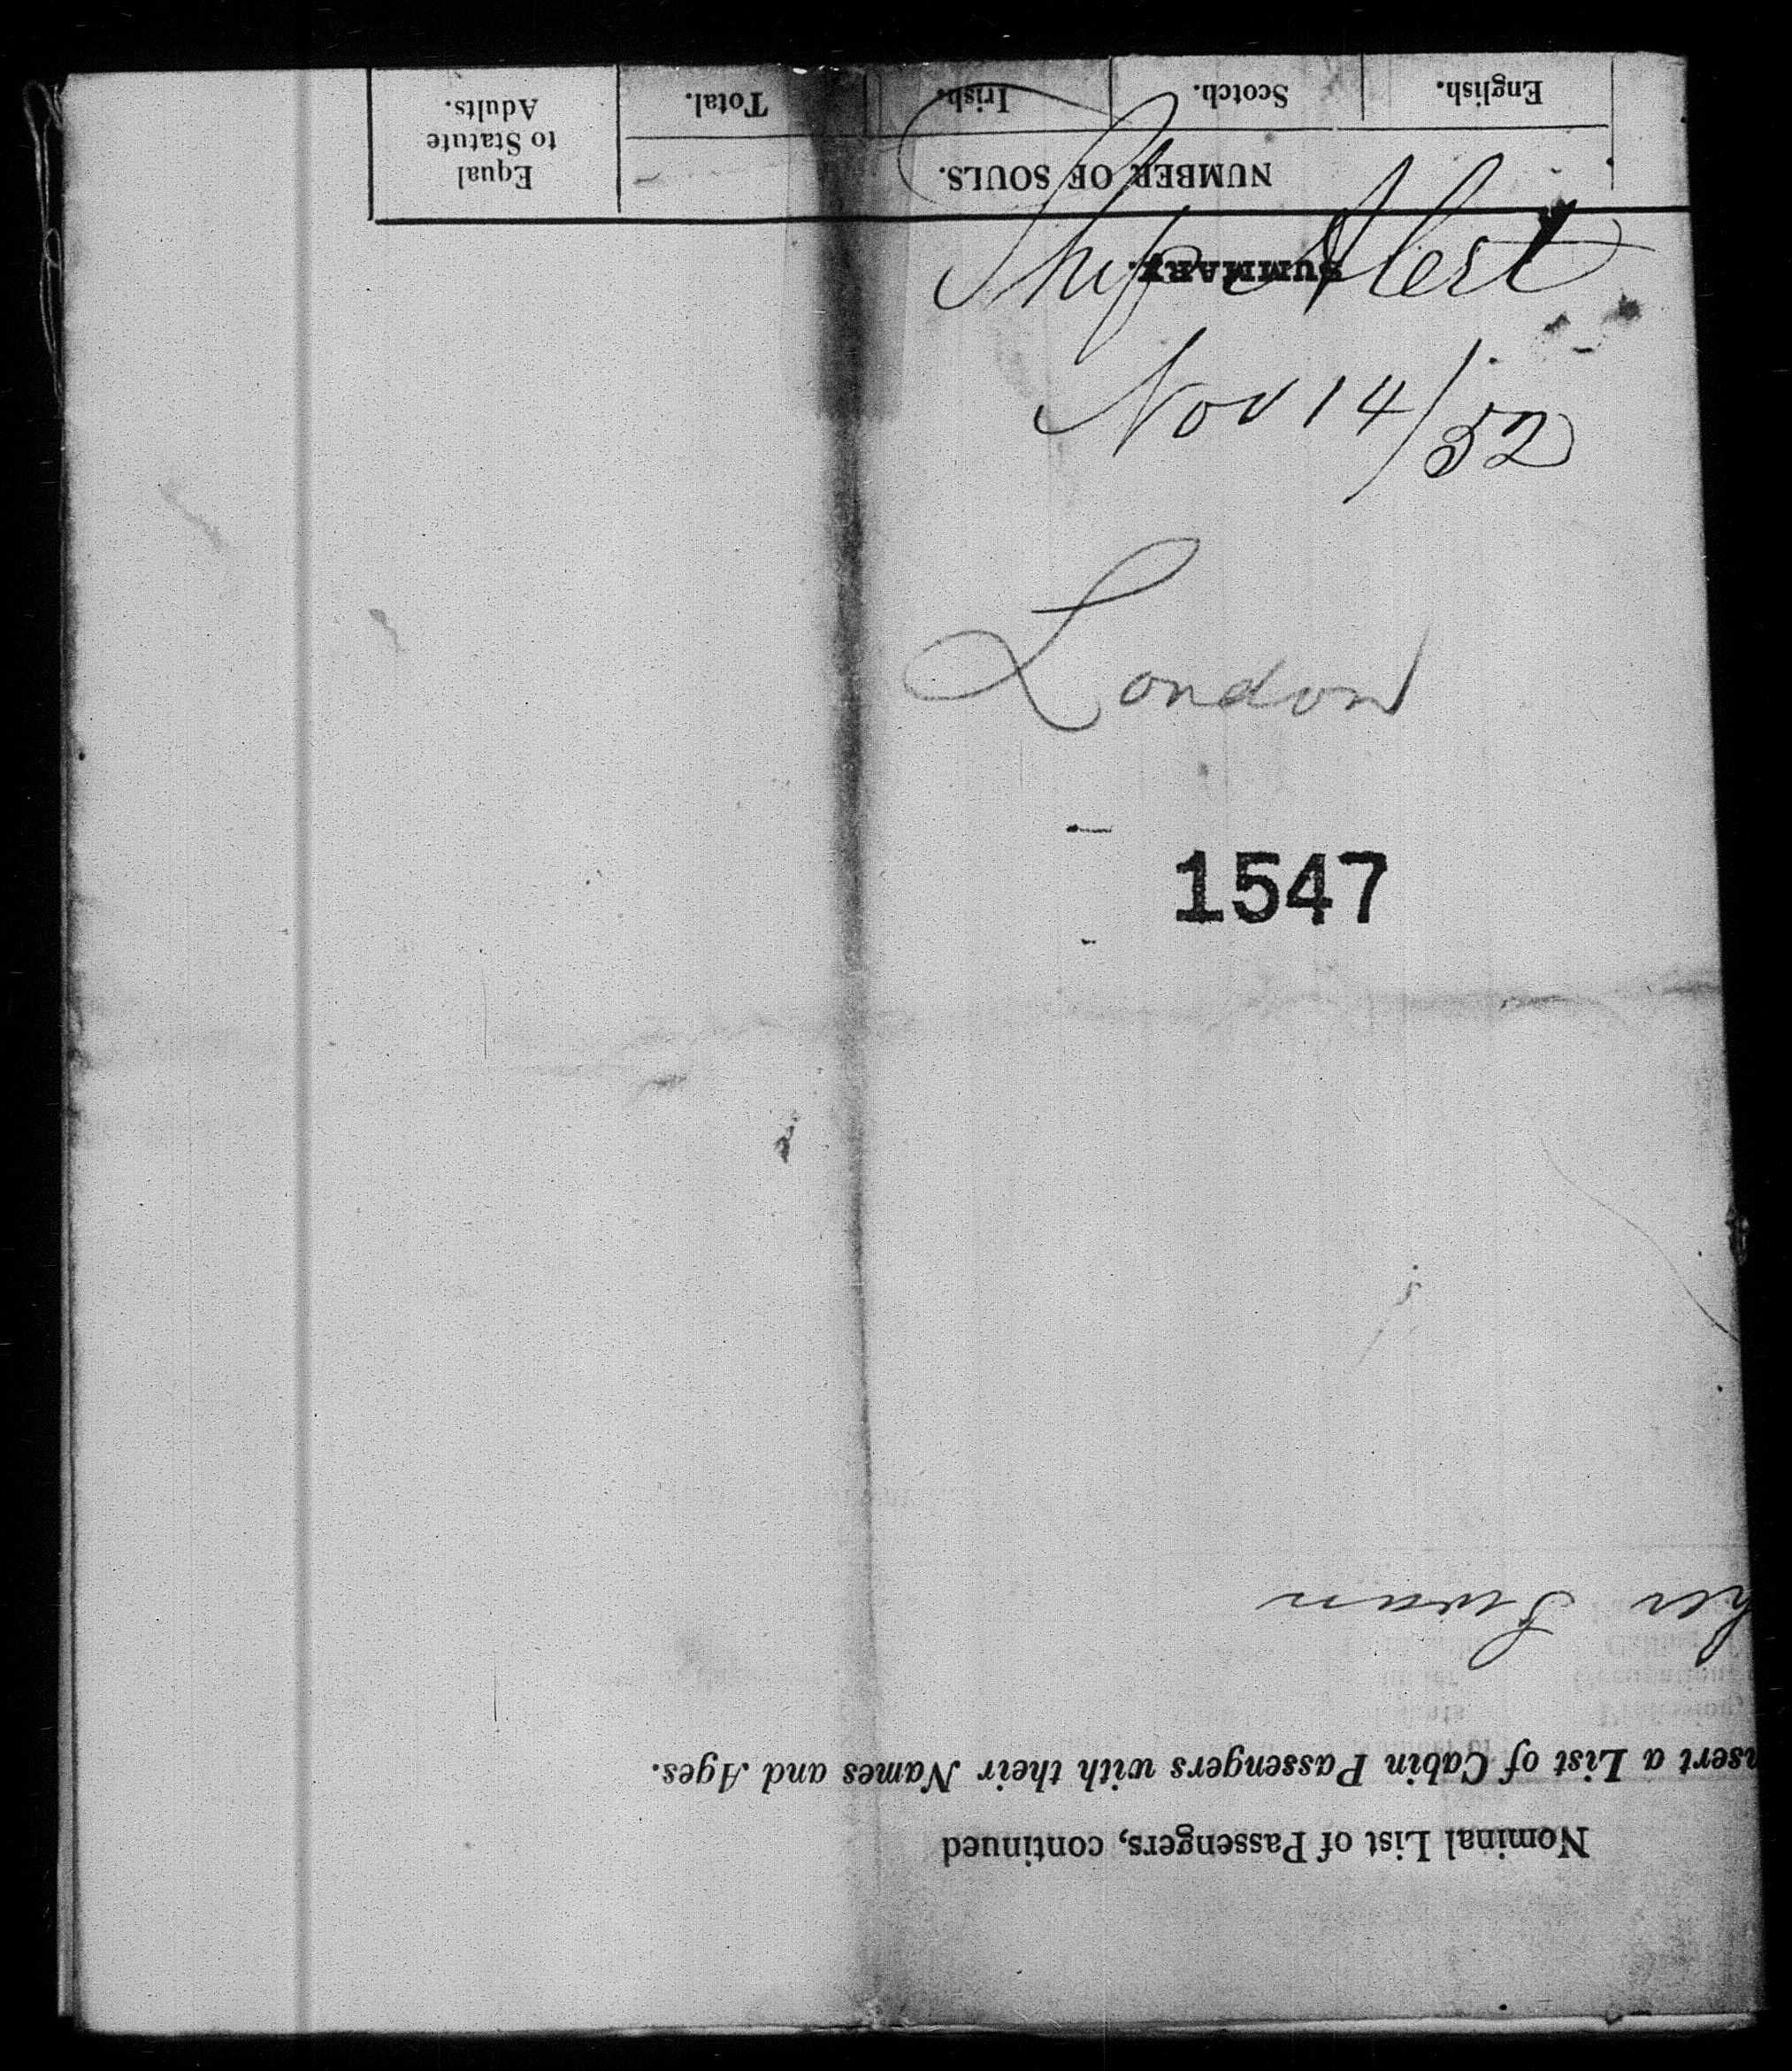 Ship Alert
Nov 14/52
London
1547
Nominal List of Passengers, continued
nsert a List of Cabin Passengers with their Names and Ages.
her Swan
SUMMARY.
NUMBER OF SOULS.
Equal to Statute Adults.
English.
Scotch.
Irish.
Total.